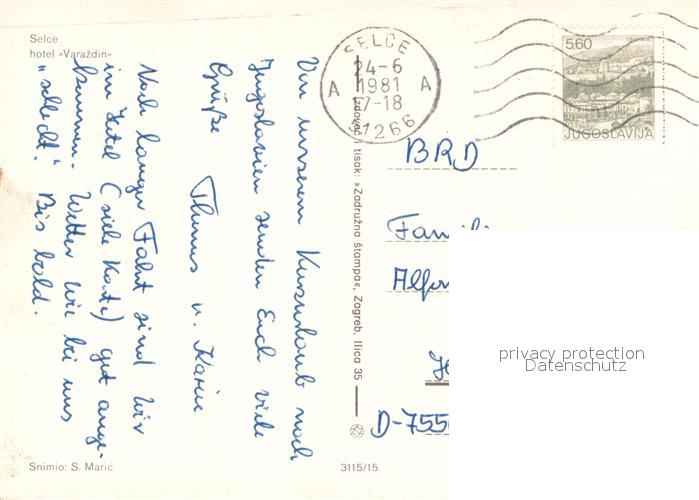 Selce
hotel »Varaždin«
Von unserem Kurzurlaub nach
Jugoslavien senden Euch viele
Grüße
Thomas u. Karin
Nach langer Fahrt sind wir
im Hotel (siehe Karte) gut ange-
kommen. Wetter wie bei uns
"schlecht". Bis bald.
Snimio: S. Marić
3115/15
Izdavač i tisak: »Zadružna štampa«, Zagreb, Ilica 35
SELCE
24-6
A 1981 A
17-18
51266
5.60
JUGOSLAVIJA
BRD
Famili
Alfon
D-755
privacy protection
Datenschutz